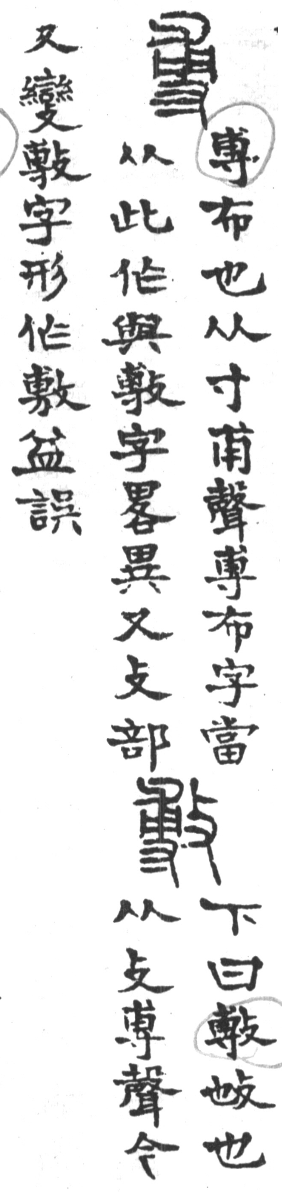 尃
尃布也从寸甫聲尃布字當
从此作與𢾭字畧異又攴部
𢾭
下曰𢾭𢻱也
从攴尃聲今
又變𢾭字形作敷益誤